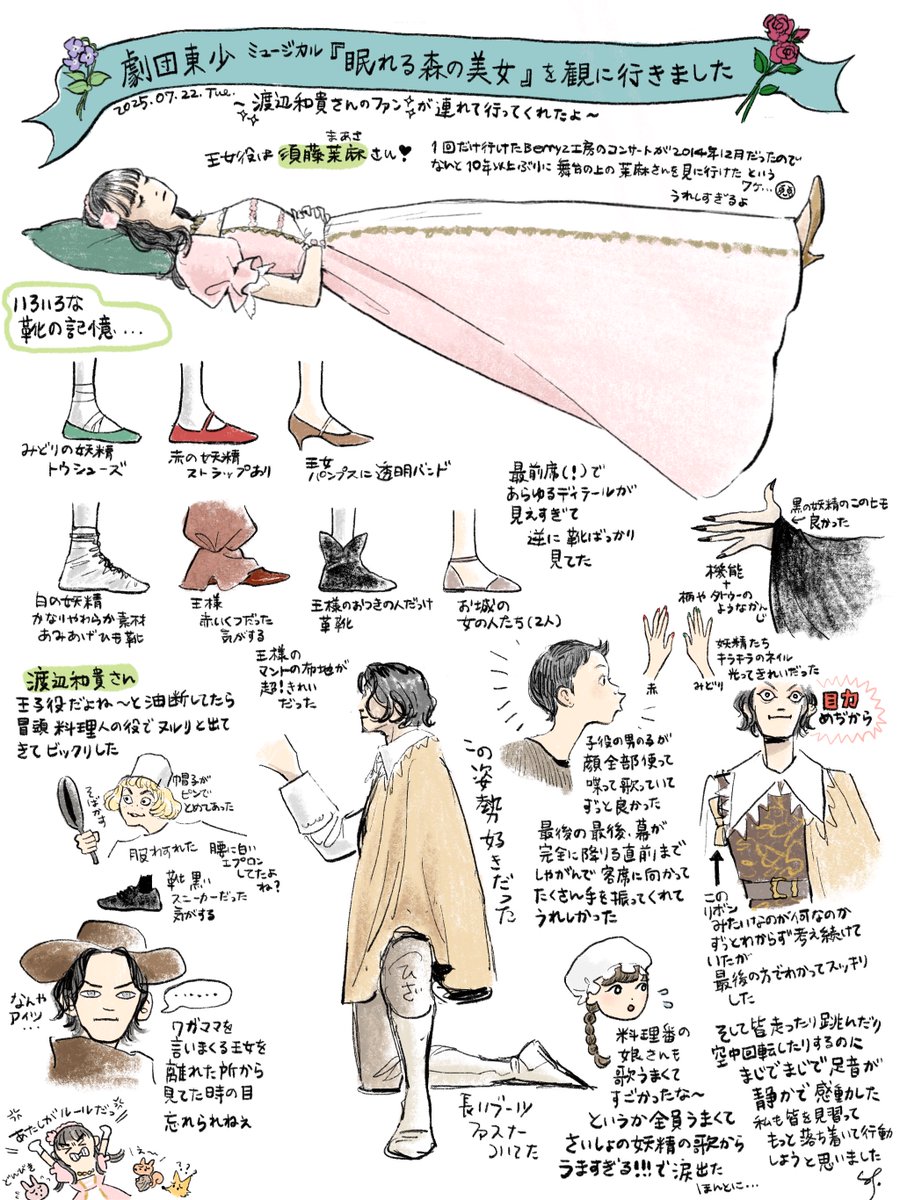 劇団東少 ミュージカル『眠れる森の美女』を観に行きました
2025.07.22.Tue.
〜渡辺和貴さんのファンが連れて行ってくれたよ〜
まあさ
王女役は 須藤茉麻さん♥
1回だけ行けたBerryz工房のコンサートが2014年12月だったので
なんと10年以上ぶりに舞台の上の茉麻さんを見に行けた という
ワケ…
うれしすぎるよ
いろいろな
靴の記憶…
みどりの妖精
トウシューズ
赤の妖精
ストラップあり
王女
パンプスに透明バンド
最前席(!)で
あらゆるディテールが
見えすぎて
逆に靴ばっかり
見てた
黒の妖精のこのヒモ
良かった
機能
+
柄やタトゥーの
ようなかんじ
白の妖精
かなりやわらか素材
あみあげひも靴
王様
赤いくつだった
気がする
王様のおつきの人だっけ
革靴
お城の
女の人たち(2人)
妖精たち
キラキラのネイル
光ってきれいだった
赤
みどり
渡辺和貴さん
王子役だよね〜と油断してたら
冒頭 料理人の役でヌルリと出て
きてビックリした
王様の
マントの布地が
超!きれい
だった
帽子が
ピンで
とめてあった
そばかす
服わすれた
腰に白い
エプロン
してたよ
ね?
靴黒い
スニーカーだった
気がする
この姿勢好きだった
ひざ
長いブーツ
ファスナー
ついてた
子役の男の子が
顔全部使って
喋って歌っていて
ずっと良かった
最後の最後、幕が
完全に降りる直前まで
しゃがんで客席に向かって
たくさん手を振ってくれて
うれしかった
目力
めぢから
この
リボン
みたいなのが何なのか
ずっとわからず考え続けて
いたが
最後の方でわかってスッキリ
した
なんや
アイツ
…
……
ワガママを
言いまくる王女を
離れた所から
見てた時の目
忘れられねぇ
あたしがルールだっ
どんびき
え〜
??
料理番の
娘さんも
歌うまくて
すごかったな〜
というか全員うまくて
さいしょの妖精の歌から
うますぎる!!!で涙出た
ほんとに…
そして皆走ったり跳んだり
空中回転したりするのに
まじでまじで足音が
静かで感動した
私も皆を見習って
もっと落ち着いて行動
しようと思いました